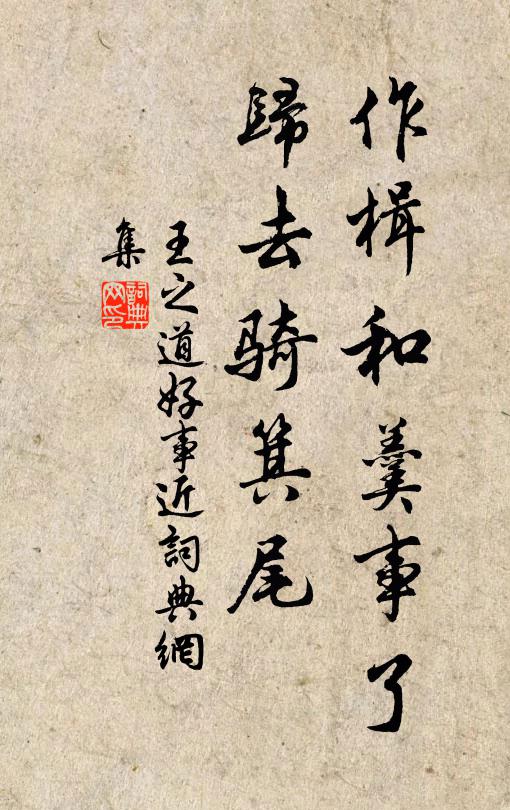 作楫和羹事了
歸去騎箕尾
王之道好事近詞典網
集
詞典
网印